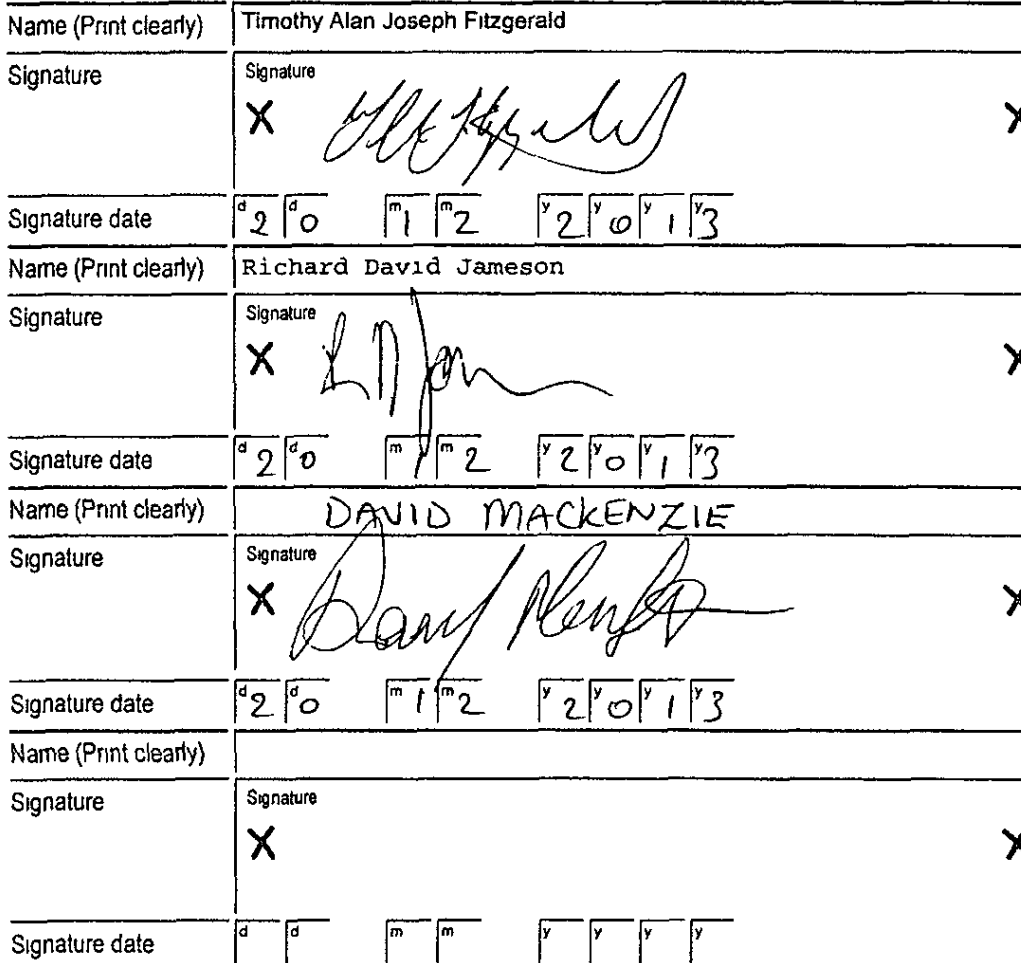 Name (Print clearly) Timothy Alan Joseph Fitzgerald
Signature Signature
X X
Signature date d 2 d 0 m 1 m 2 y 2 y 0 y 1 y 3
Name (Print clearly) Richard David Jameson
Signature Signature
X X
Signature date d 2 d 0 m 1 m 2 y 2 y 0 y 1 y 3
Name (Print clearly) DAVID MACKENZIE
Signature Signature
X X
Signature date d 2 d 0 m 1 m 2 y 2 y 0 y 1 y 3
Name (Print clearly)
Signature Signature
X X
Signature date d d m m y y y y